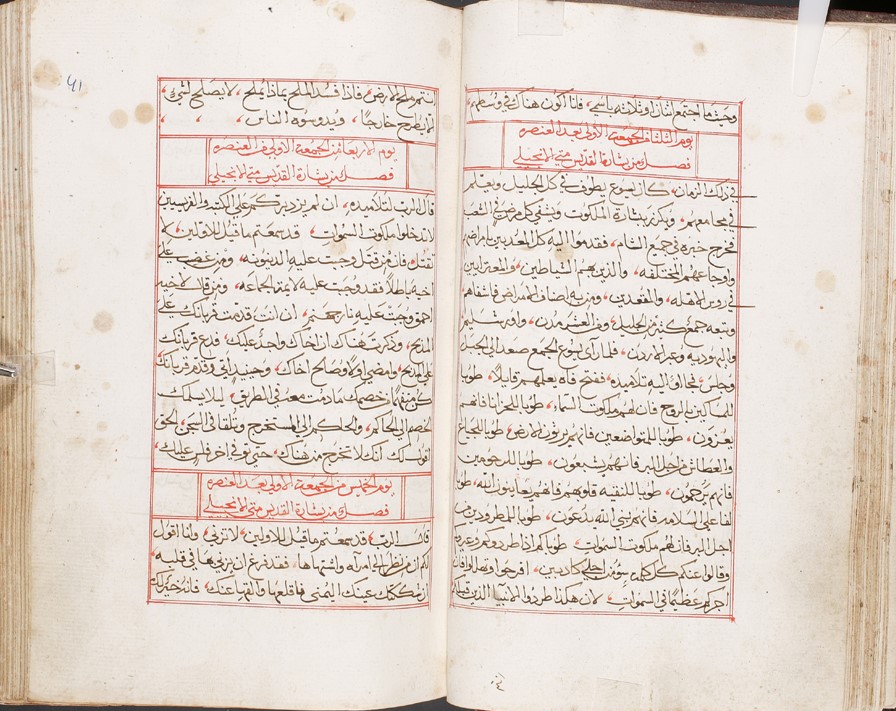 وحيثما اجتمع اثنان او ثلاثه باسمي، فانا اكون هناك في وسطهم،
يوم الثلثا في الجمعه الاولي بعد العنصره
فصل من بشارة القديس متي الانجيلي
في ذلك الزمان، كان يسوع يطوف في كل الجليل ويعلم
في مجامعهم، ويكرز ببشارة الملكوت ويشفي كل مرض في الشعب
فخرج خبره في جميع الشام، فقدموا اليه كل المعذبين امراضهم
واوجاعهم المختلفه، والذين بهم الشياطين، والمعترايين
في روس الاهله، والمقعدين، ومن به اصناف الامراض فاشفاهم
وتبعه جموع كثيره من الجليل، ومن العشر مدن، واورشليم
واليهوديه وعبر الاردن، فلما راي يسوع الجمع صعد الي الجبل
وجلس، فجاوا اليه تلاميذه، ففتح فاه يعلمهم قايلاً، طوبا
للمساكين بالروح فان لهم ملكوت السماء، طوبا للحزانا فانهم
يعزون، طوبا للمتواضعين فانهم يرثون الارض، طوبا للجياع
والعطاش من اجل البر فانهم يشبعون، طوبا للرحومين
فانهم يرحمون، طوبا للنقيه قلوبهم فانهم يعاينون الله، طوبا
لفاعلي السلامه فانهم بني الله يدعون، طوبا للمطرودين من
اجل البر فان لهم ملكوت السموات، طوباكم اذا طردوكم وعيروكم
وقالوا عنكم كل كلمة سو من اجلي كاذبين، افرحوا وتهللوا فان
اجركم عظيمًا في السموات، لان هكذا طردوا الانبيا الذين قبلكم
٤١
انتم ملح الارض، فاذا فسد الملح بماذا يملح، لا يصلح لشي،
الا يطرح خارجًا، ويدوسوه الناس،
يوم الاربعا من الجمعه الاولي بعد العنصره
فصل من بشارة القديس متي الانجيلي
قال الرب لتلاميذه، ان لم يزد بركم علي الكتبه والفريسيين
لا تدخلوا ملكوت السموات، قد سمعتم ما قيل للاولين، لا
تقتل، فان من قتل وجبت عليه الدينونه، ومن غضب علي
اخيه باطلاً فقد وجبت عليه لايمة الجماعه، ومن قال لاخيه
احمق وجبت عليه نار جهنم، ان انت قدمت قربانك علي
المذبح، وذكرت هناك ان اخاك واجد عليك، فدع قربانك
علي المذبح، وامضي اولاً وصالح اخاك، وحينيذ ات وقدم قربانك
كن متفهمًا من خصمك ما دمت معه في الطريق، ليلا يسلمك
الخصم الي الحاكم، والحاكم الي المستخرج وتلقا في السجن، الحق
اقول لك انك لا تخرج من هناك، حتي توفي اخر فلس عليك،
يوم الخميس من الجمعه الاولي بعد العنصره
فصل من بشارة القديس متي الانجيلي
قال الرب، قد سمعتم ما قيل للاولين، لا تزني، وانا اقول
لكم ان من نظر الي امرآه واشتهاها، فقد فرغ ان يزني بها في قلبه،
ان شككك عينك اليمني فاقلعها والقيها عنك، فانه خير لك